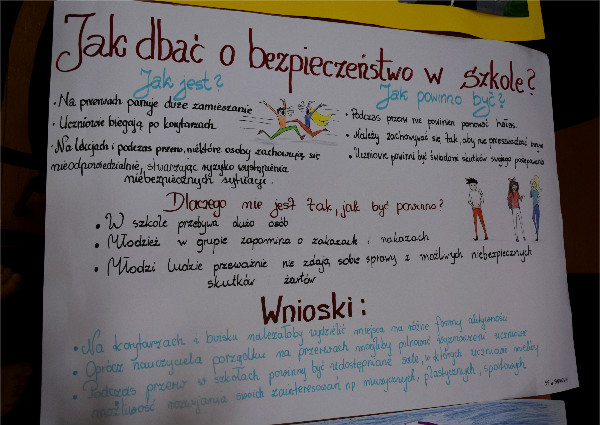 Jak dbać o bezpieczeństwo w szkole?
Jak jest?
• Na przerwach panuje duże zamieszanie
• Uczniowie biegają po korytarzach
• Na lekcjach i podczas przerw, niektóre osoby zachowują się
nieodpowiedzialnie, stwarzając ryzyko wystąpienia
niebezpiecznych sytuacji.
Jak powinno być?
• Podczas przerw nie powinien panować hałas.
• Należy zachowywać się tak, aby nie przeszkadzać innym
• Uczniowie powinni być świadomi skutków swojego postępowania
Dlaczego nie jest tak, jak być powinno?
• W szkole przebywa dużo osób
• Młodzież w grupie zapomina o zakazach i nakazach
• Młodzi ludzie przeważnie nie zdają sobie sprawy z możliwych niebezpiecznych
skutków żartów
Wnioski:
• Na korytarzach i boisku należałoby wydzielić miejsca na różne formy aktywności
• Oprócz nauczyciela porządku na przerwach mogliby pilnować wyznaczeni uczniowie
• Podczas przerw w szkołach powinny być udostępniane sale, w których uczniowie mieliby
możliwość rozwijania swoich zainteresowań np muzycznych, plastycznych, sportowych